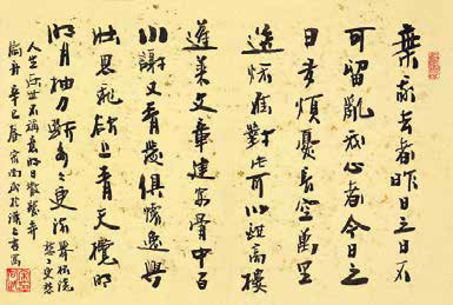 棄我去者昨日之日不
可留亂我心者今日之
日多煩憂長空萬里
送秋雁對此可以酣高樓
蓬萊文章建安骨中間
小謝又清發俱懷逸興
壯思飛欲上青天攬明
明月抽刀斷水々更流 舉杯消
愁々更愁
人生在世不稱意明日散髮弄
扁舟 辛巳春